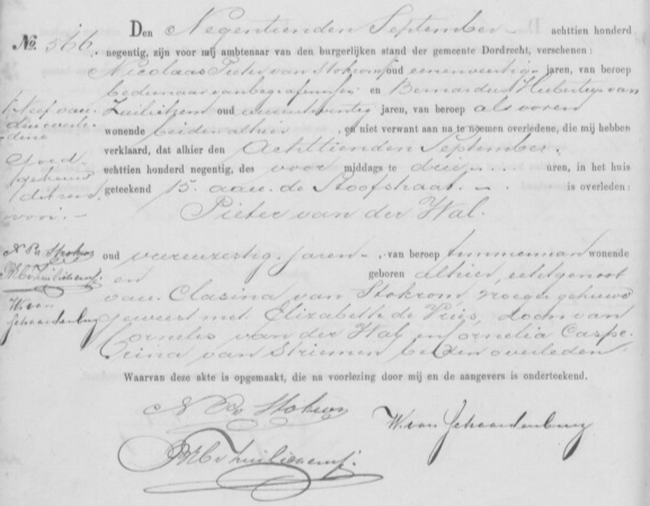 Den Negentienden September achttien honderd
No. 566. negentig, zijn voor mij ambtenaar van den burgerlijken stand der gemeente Dordrecht, verschenen:
Nicolaas Pieter van Stokrom oud eenenveertig jaren, van beroep
bedienaar van begrafenissen en Bernardus Huibertus van
Zuilichem oud jaren, van beroep als voren
wonende beiden alhier, en niet verwant aan na te noemen overledene, die mij hebben
verklaard, dat alhier den Achttienden September
achttien honderd negentig, des voor middags te drie uren, in het huis
geteekend 15. aan de Stoofstraat. is overleden:
Pieter van der Wal.
oud jaren, van beroep timmerman wonende
en geboren alhier, echtgenoot
van Clasina van Stokrom, vroeger gehuwd
geweest met Elizabeth de Vrijs, zoon van
Cornelis van der Wal en Cornelia Caspe-
rina van Strienen beiden overleden.
Waarvan deze akte is opgemaakt, die na voorlezing door mij en de aangevers is onderteekend.
N P v Stokrom
W. van Schaardenburg
BH v Zuilichem
goed-
gekeurd
N P v Stokrom
BH v Zuilichem
W. van
Schaardenburg